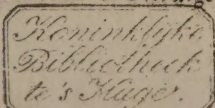 Koninklyke
Bibliotheek
te's Hage